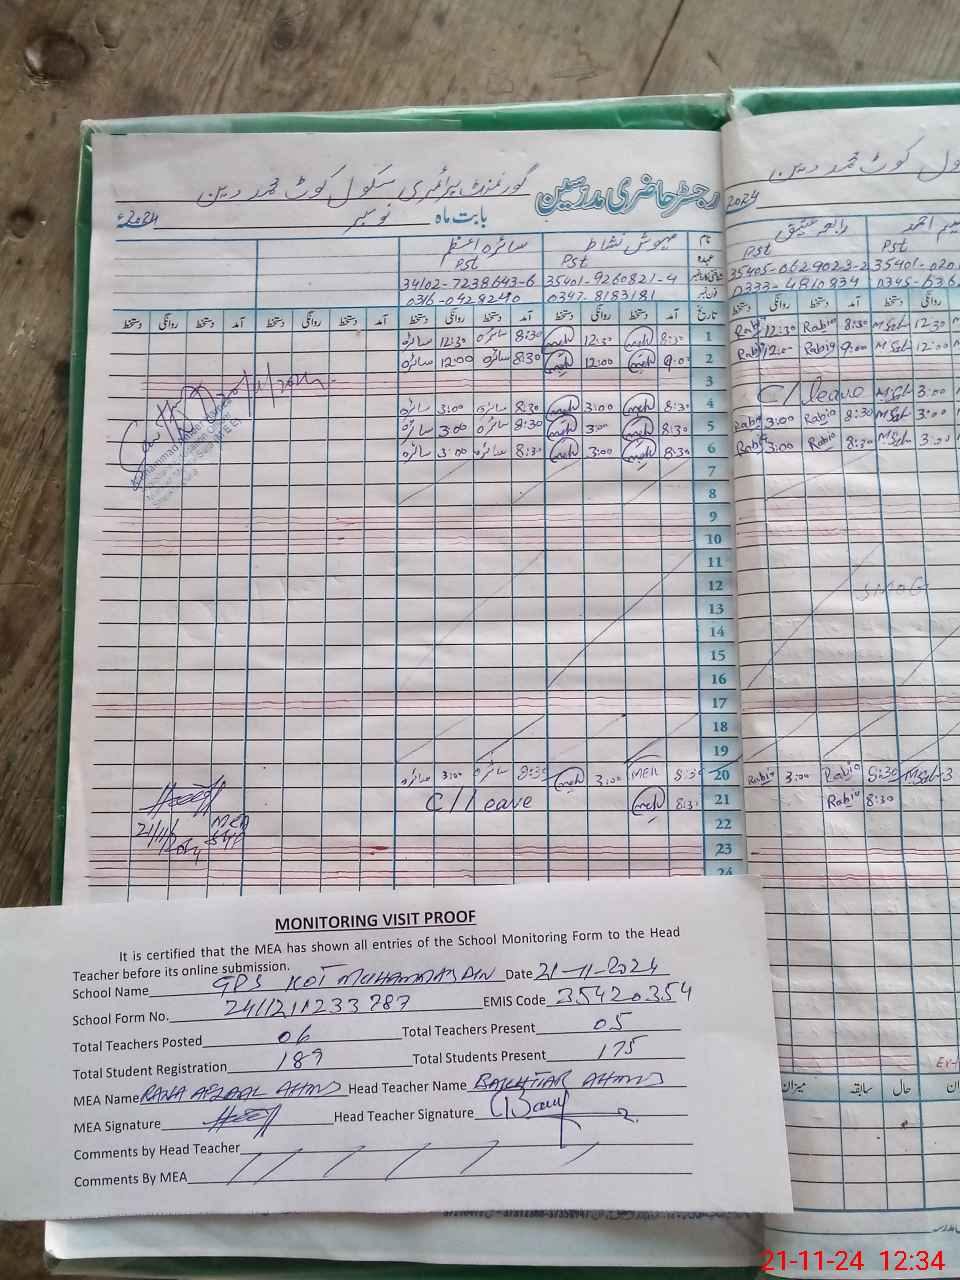 گورنمنٹ پرائمری سکول کوٹ محمد دین
رجسٹر حاضری مدرسین
بابت ماہ نومبر 2024ء
نام مہوش نشاط سائرہ اعظم
عہدہ Pst Pst
35401-9260821-4 34102-7238643-6
0347-8183181 0316-0428240
تاریخ آمد دستخط روانگی دستخط آمد دستخط روانگی دستخط آمد دستخط روانگی دستخط آمد دستخط روانگی دستخط
1 8:30 meh 12:30 meh 8:30 سائرہ 12:30 سائرہ
2 9:00 meh 12:00 meh 8:30 سائرہ 12:00 سائرہ
3
4 8:30 meh 3:00 meh 8:30 سائرہ 3:00 سائرہ
5 8:30 meh 3:00 meh 8:30 سائرہ 3:00 سائرہ
6 8:30 meh 3:00 meh 8:30 سائرہ 3:00 سائرہ
7
8
9
10
11
12
13
14
15
16
17
18
19
20 8:30 MEH 3:00 meh 8:30 سائرہ 3:00 سائرہ
21 8:30 meh C/leave
22
23
24
20/11/2024
21/11/2024 MEA
سکول کوٹ محمد دین
2024
رابعہ عتیق
Pst Pst
35405-0629023-2 35401-020
0333-4810834 0345-636
دستخط روانگی دستخط آمد دستخط روانگی
Rabia 12:30 Rabia 8:30 12:30
Rabia 12:00 Rabia 9:00 12:00
C/leave 3:00
Rabia 3:00 Rabia 8:30 3:00
Rabia 3:00 Rabia 8:30 3:00
SMOG
Rabia 3:00 Rabia 8:30
Rabia 8:30
میزان سابقہ حال
MONITORING VISIT PROOF
It is certified that the MEA has shown all entries of the School Monitoring Form to the Head
Teacher before its online submission.
School Name GPS KOT MUHAMMAD DIN Date 21-11-2024
School Form No. 2411211233787 EMIS Code 35420354
Total Teachers Posted 06 Total Teachers Present 05
Total Student Registration 189 Total Students Present 175
MEA Name RANA AFZAAL AHMD Head Teacher Name BAKHTIAR AHMAD
MEA Signature Head Teacher Signature
Comments by Head Teacher
Comments By MEA
21-11-24 12:34